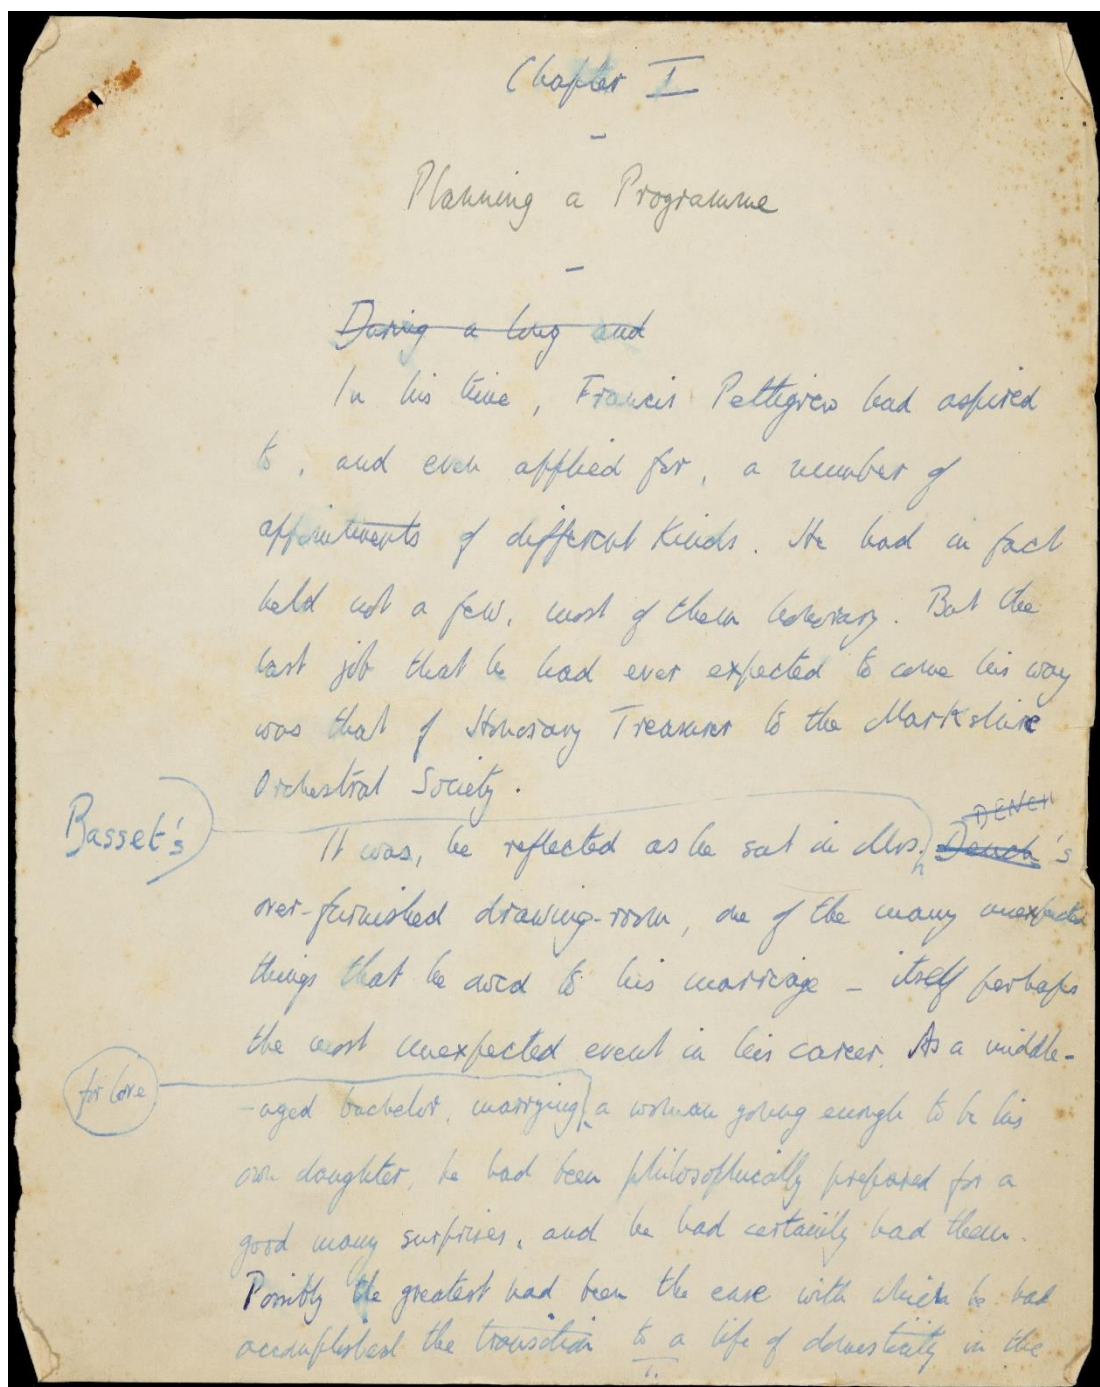 Chapter I
-
Planning a Programme
-
During a long and
In his time, Francis Pettigrew had aspired
to, and even applied for, a number of
appointments of different kinds. He had in fact
held not a few, most of them honorary. But the
last job that he had ever expected to come his way
was that of Honorary Treasurer to the Markshire
Orchestral Society.
DENCH
Basset's
It was, he reflected as he sat in Mrs. Dench's
over-furnished drawing-room, one of the many unexpected
things that he owed to his marriage - itself perhaps
the most unexpected event in his career. As a middle-
for love
-aged bachelor, marrying a woman young enough to be his
own daughter, he had been philosophically prepared for a
good many surprises, and he had certainly had them.
Possibly the greatest had been the ease with which he had
accomplished the transition to a life of domesticity in the